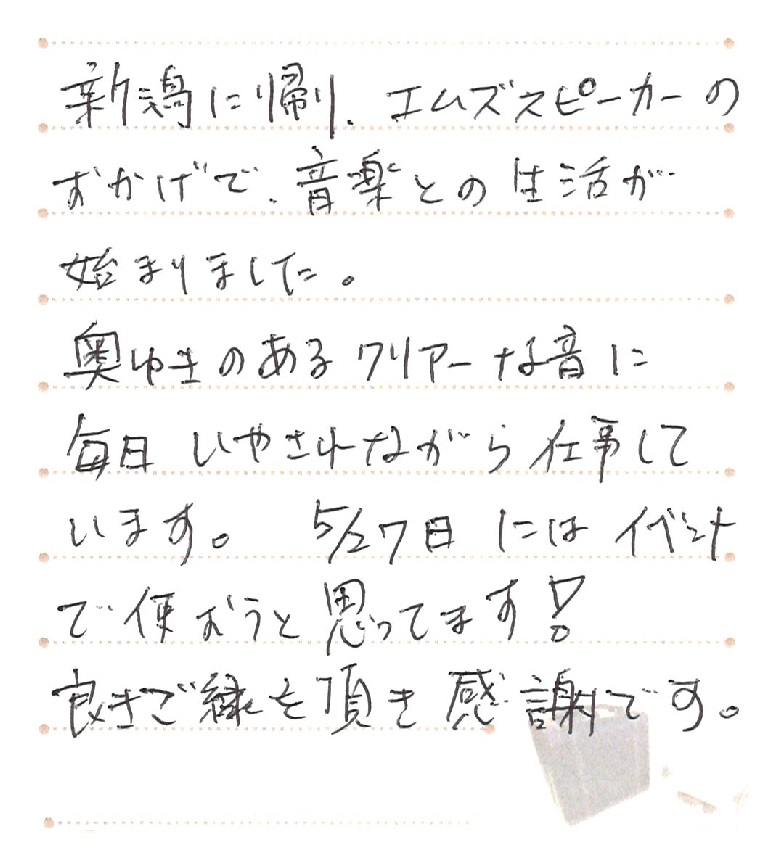 新潟に帰り、エムズスピーカーの
おかげで、音楽との生活が
始まりました。
奥ゆきのあるクリアーな音に
毎日いやされながら仕事して
います。 5/27日にはイベント
で使おうと思ってます!
良きご縁を頂き感謝です。